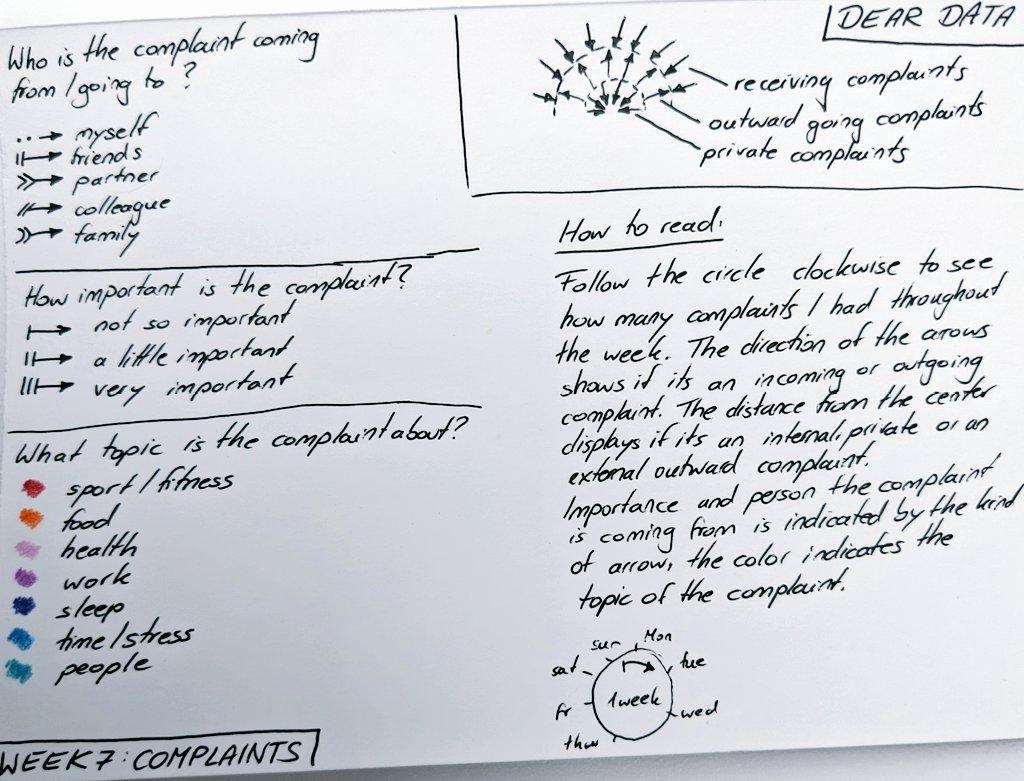 DEAR DATA
Who is the complaint coming
from/going to?
myself
friends
partner
colleague
family
receiving complaints
outward going complaints
private complaints
How important is the complaint?
not so important
a little important
very important
What topic is the complaint about?
sport/fitness
food
health
work
sleep
time/stress
people
How to read:
Follow the circle clockwise to see
how many complaints I had throughout
the week. The direction of the arrows
shows if its an incoming or outgoing
complaint. The distance from the center
displays if its an internal, private or an
external outward complaint.
Importance and person the complaint
is coming from is indicated by the kind
of arrow, the color indicates the
topic of the complaint.
sun Mon
sat tue
1 week
fr wed
thur
WEEK 7: COMPLAINTS